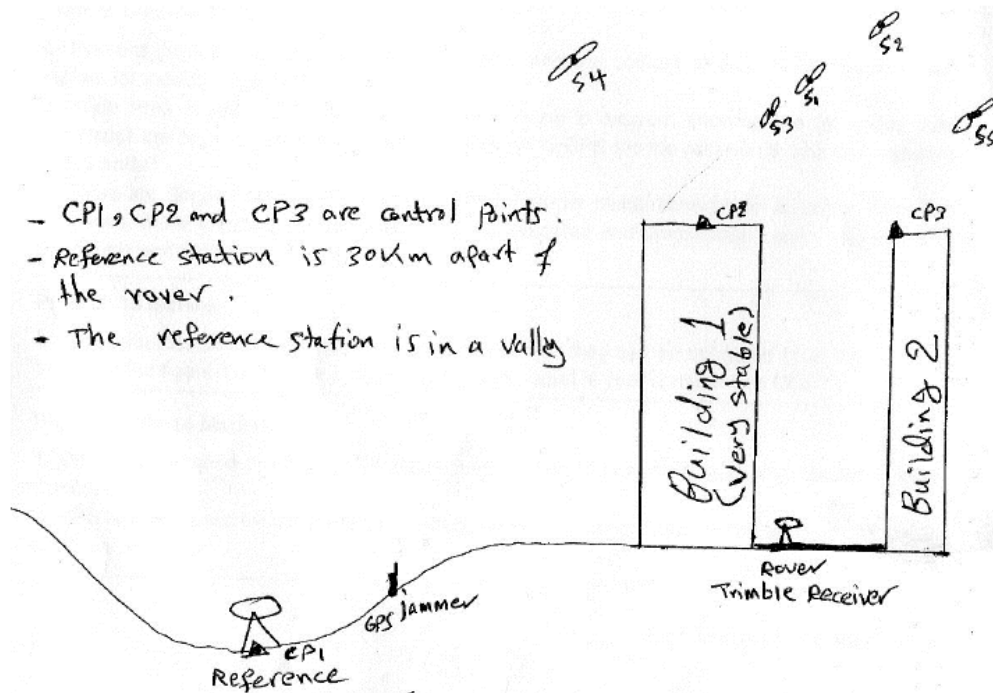 S4
S2
S1
S3
S5
- CP1, CP2 and CP3 are control points.
- Reference station is 30Km apart of
the rover.
- The reference station is in a valley
CP2
CP3
Building 1
(very stable)
Building 2
Rover
Trimble Receiver
GPS jammer
CP1
Reference